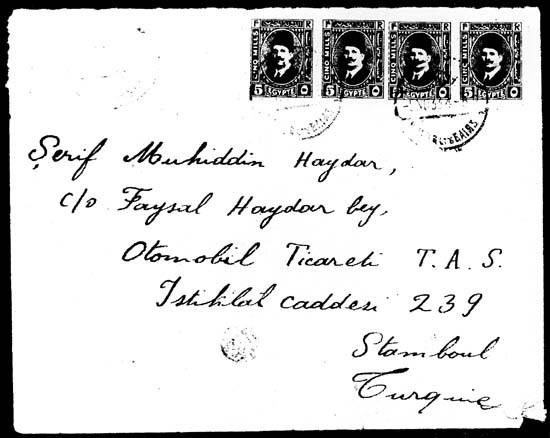 F R
CINQ MILLS
5 EGYPTE ٥
F R
CINQ MILLS
5 EGYPTE ٥
F R
CINQ MILLS
5 EGYPTE ٥
F R
CINQ MILLS
5 EGYPTE ٥
Şerif Muhiddin Haydar,
c/o Faysal Haydar bey,
Otomobil Ticareti T.A.S.
Istiklâl caddesi 239
Stamboul
Turquie